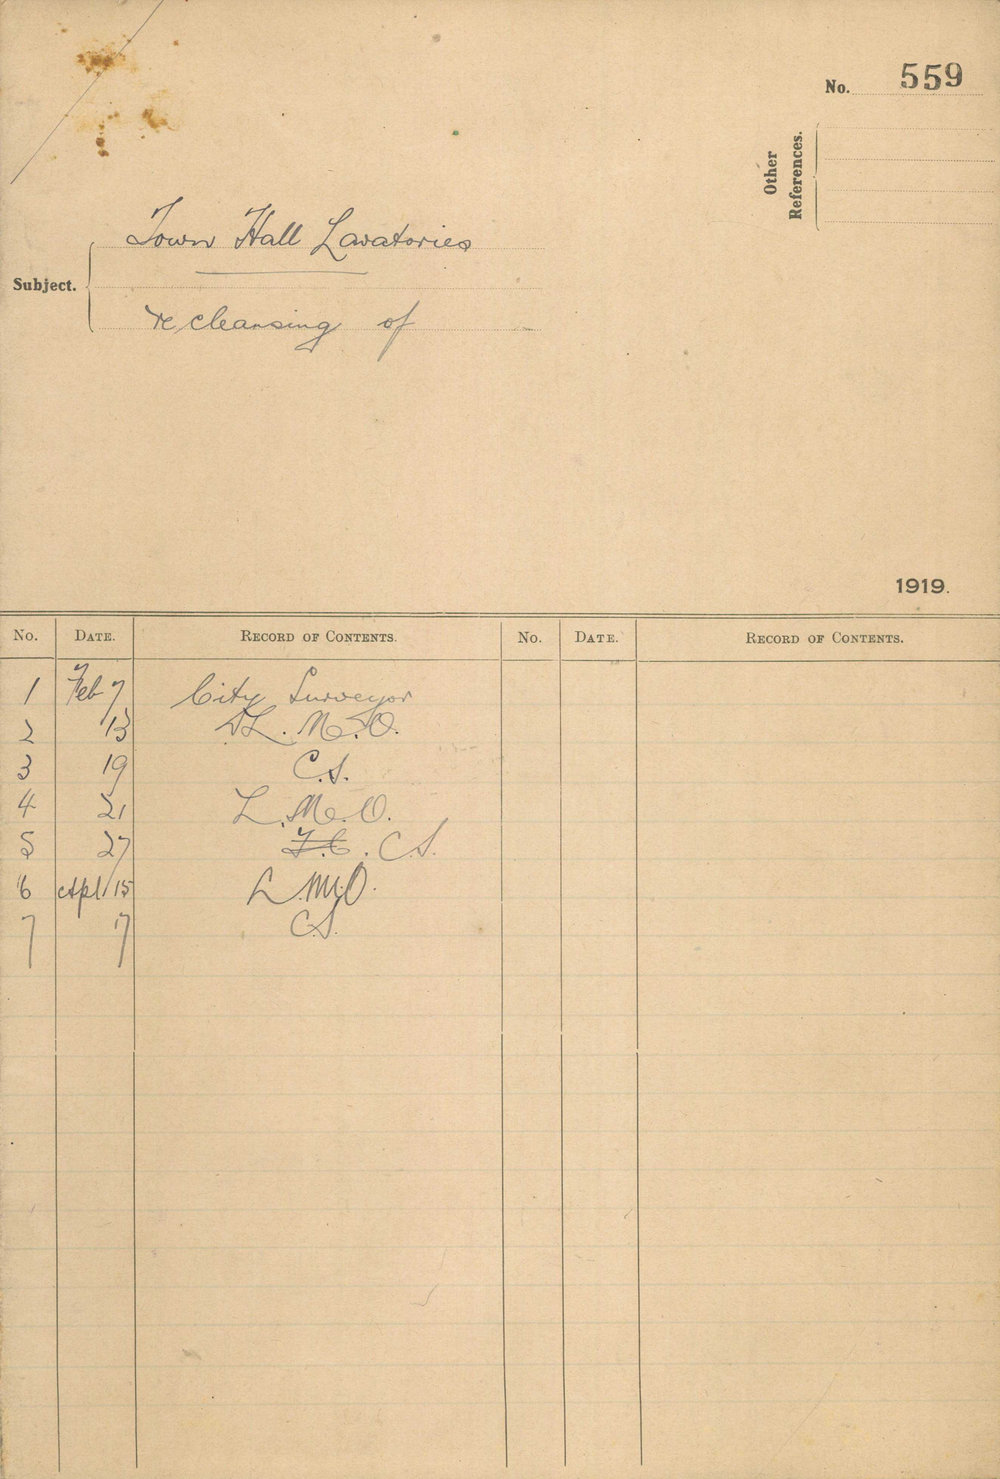 No. 559
Other
References.
Town Hall Lavatories
Subject.
re cleansing of
1919.
No. DATE. RECORD OF CONTENTS. No. DATE. RECORD OF CONTENTS.
1 Feb 7 City Surveyor
2 13 L. M. O.
3 19 C.S.
4 21 L. M. O.
5 27 T.C. C.S.
6 Apl 15 L.M.O.
7 17 C.S.